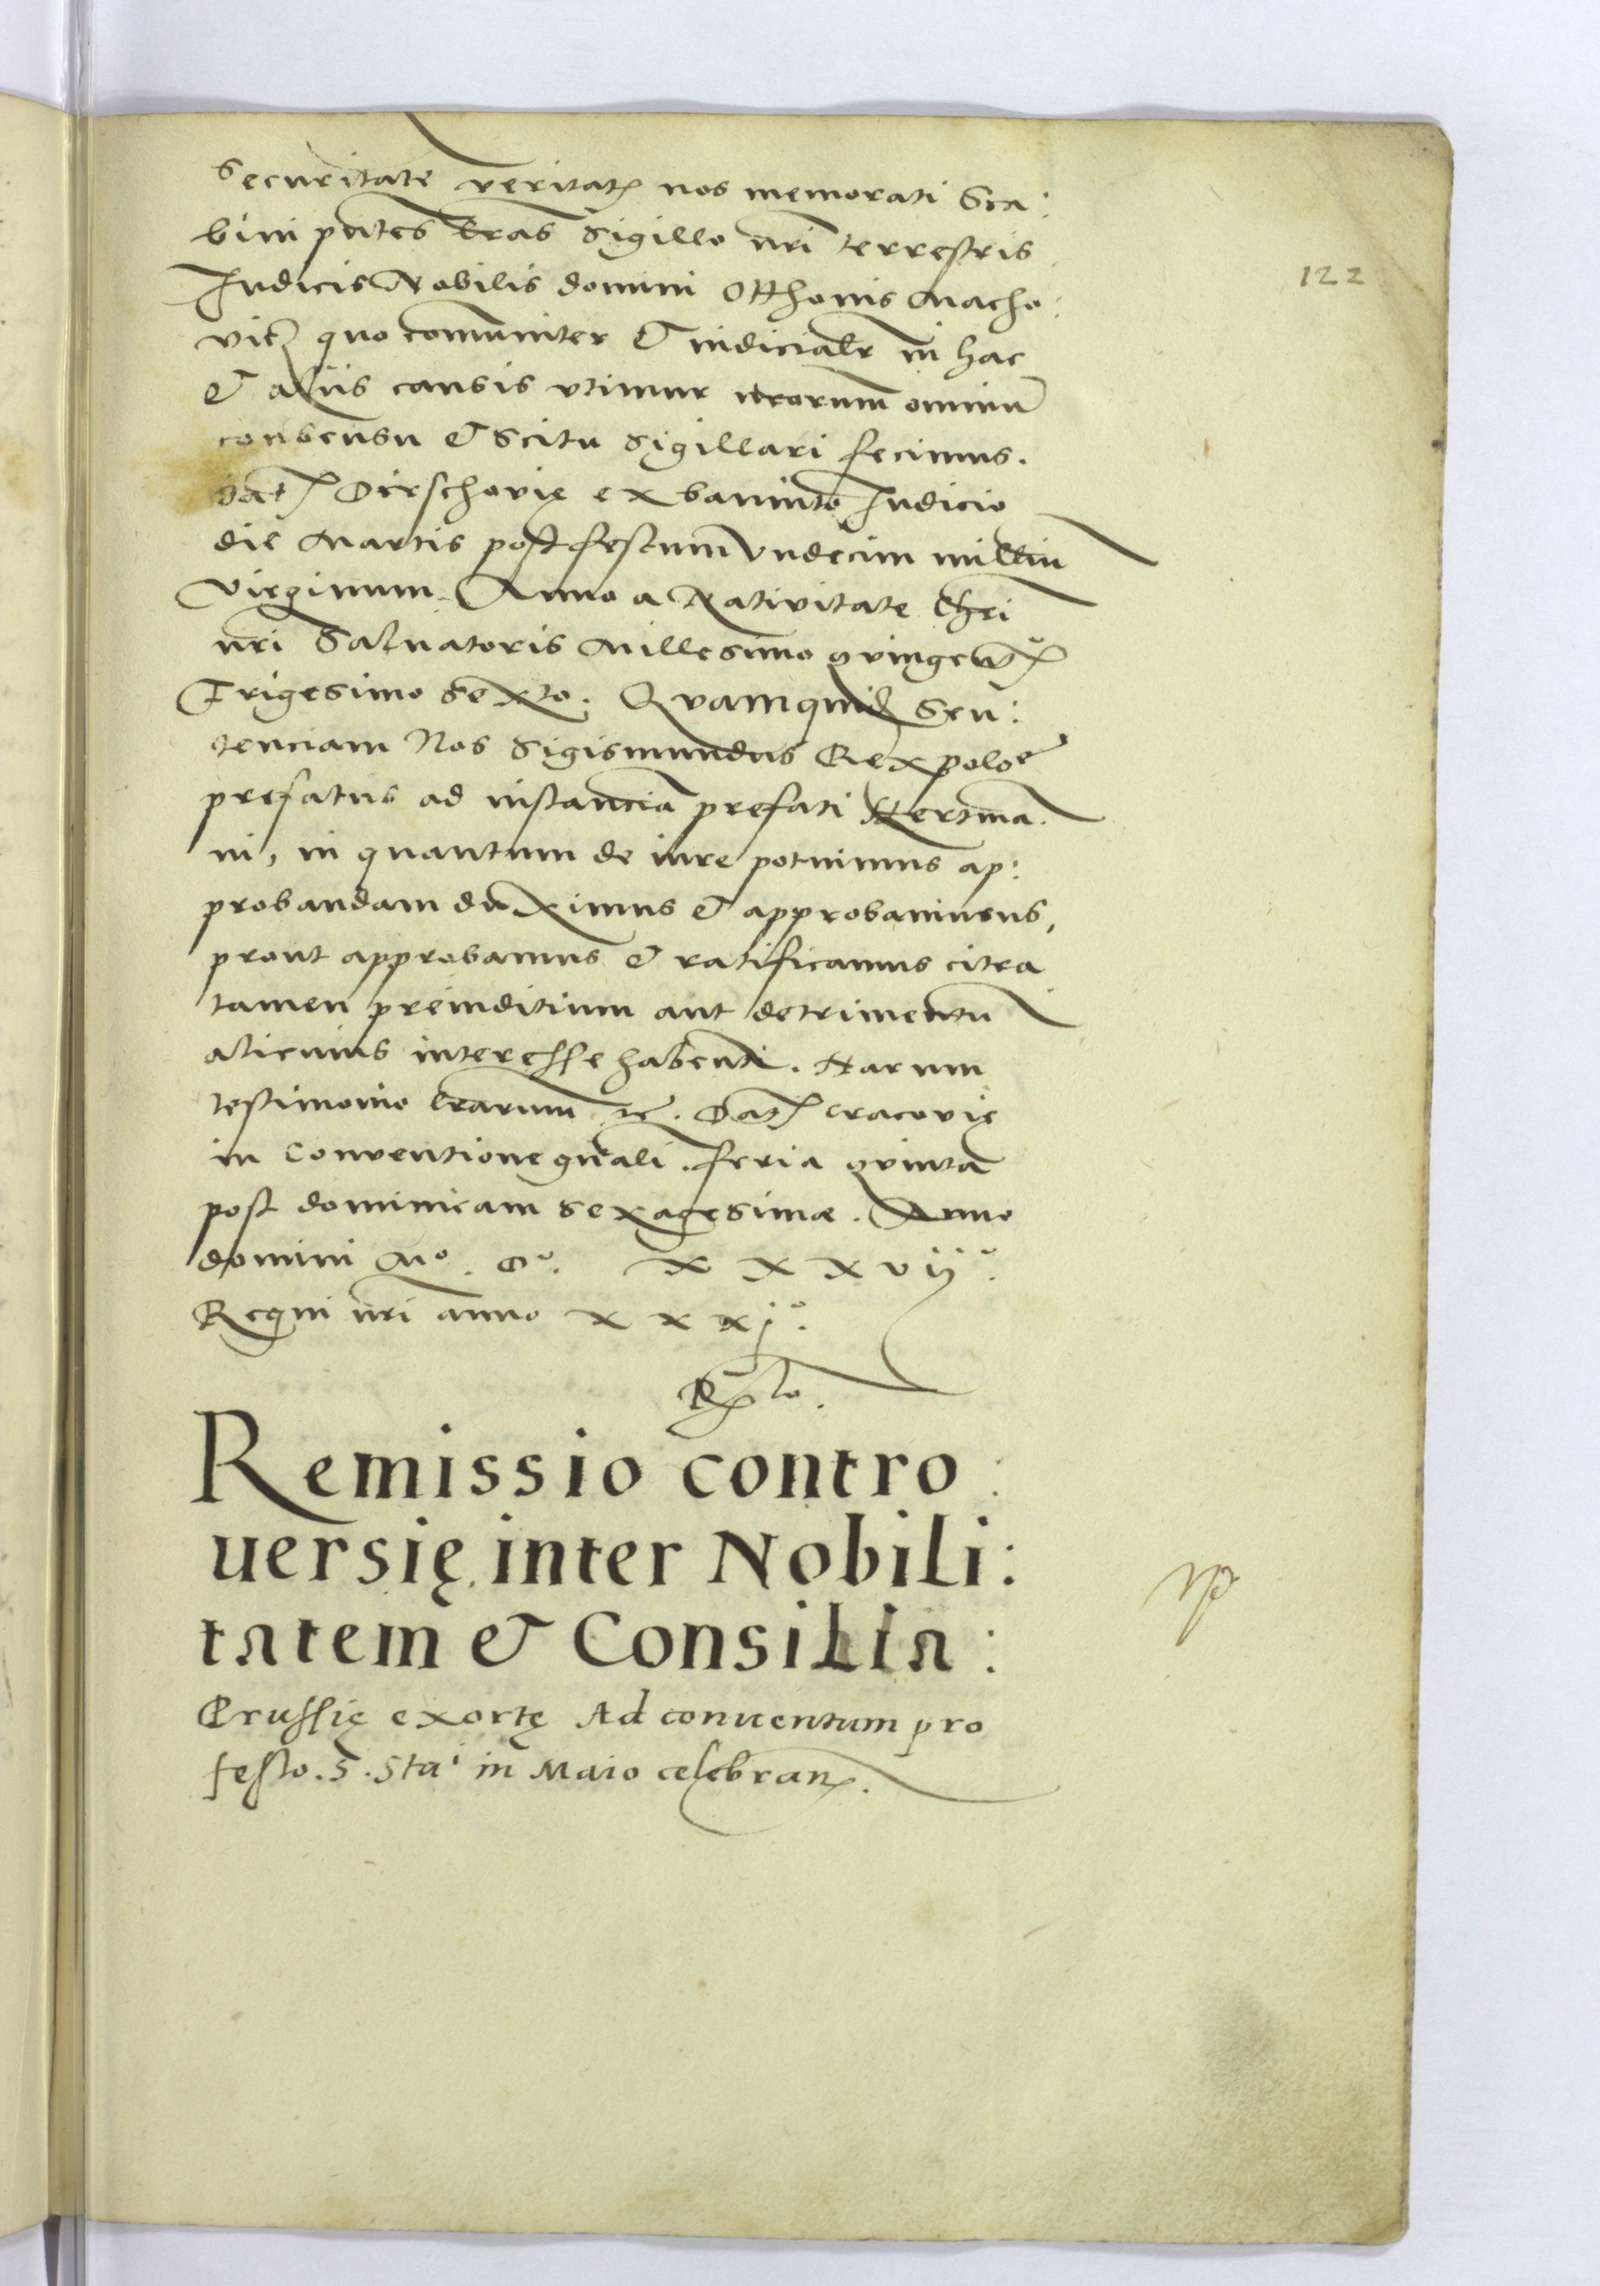 Securitate veritatꝭ nos memorati Sca:
bini pñtes lr̃as Sigillo nr̃i terrestris
122
Iudicis Nobilis domini Otthonis Macho:
vitꝭ quo com̃uniter & iudicialr̃ in hac
& alijs causis vtimur nr̃orum om̃niũ
consensu & scitu sigillari fecimus.
Datꝭ Dirschovię ex bannito Iudicio
die Martis post festum Vndecim milliũ
Virginum. Anno a Nativitate Chr̃i
nr̃i Saluatoris Millesimo quingentꝭº
Trigesimo sexto. Quamquidẽ Sen:
tenciam Nos Sigismundus Rex poloᵉ
prefatus ad instanciã prefati Hertma:
ni, in quantum de iure potuimus ap:
probandam duximus & approbauimus,
prout approbamus & ratificamus citra
tamen preiuditium aut detrimentũ
alicuius interesse habentꝭ. Harum
testimonio lr̃arum ꝛc̃. Datꝭ Cracovię
in Conventione gñali. feria quinta
post dominicam sexagesimæ. Anno
domini Mº. Dº. xxxvijº.
Regni nr̃i anno xxxjº.
Remissio contro:
uersię inter Nobili:
tatem & Consilia:
Prussię exortę Ad conuentum pro
festo. S. Sta: in Maio celebranꝭ.